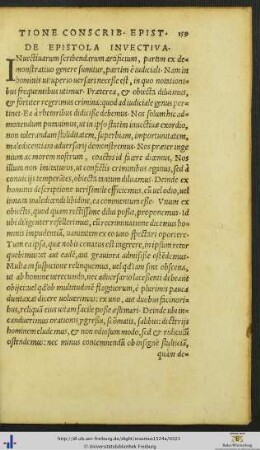 TIONE CONSCRIB. EPIST. 159
DE EPISTOLA INVECTIVA.
INuectiuarum scribendarum artificium, partim ex de-
monstratiuo genere sumitur, partim è iudiciali. Nam in
hominis uituperio uersari necesse est, in quo
bus frequentibus utimur. Præterea, & obiecta diluimus,
& fortiter regerimus crimina: quod ad iudiciale genus per-
tinet. Ea à rhetoribus didicisse debemus. Nos solum hic ad-
monendum putauimus, ut in ipso statim inuectiuæ exordio,
non tolerandam stultitiam, superbiam, importunitatem,
maledicentiam aduersarij demonstremus. Nos præter inge-
nium ac morem nostrum, coactos id facere dicemus. Nos
illum non imitaturos, ut confictis criminibus agamus, sed à
conuicijs temperantes, obiecta tantum diluamus. Deinde ex
hominis descriptione uerisimile efficiemus, eũ uel odio, uel
innata maledicendi libidine, ea commentum esse. Vnum ex
obiectis, quod quam rectissime dilui possit, proponemus: Id
ubi diligenter refellerimus, cũ recriminatione dicemus ho-
minis impudentiã, uanitatem ex eo uno spectari oportere.
Tum ea ipsa, quæ nobis conatus est ingerere, in ipsum retor
quebimus: aut aut eadẽ, aut grauiora admisisse ostẽdemus.
Multa in suspicione relinquemus, uel quòd tam sint obscœna,
ut ab homine uerecundo, nec aduersario lacessenti debeant
obijci: uel q̃ ob multitudinẽ flagitiorum, è plurimis pauca
duntaxat dicere uoluerimus: ex uno, aut duobus facinori-
bus, reliquã eius uitam facile posse æstimari. Deinde ubi in-
canduerimus orationis progressu, scõmatis, salibus, dicterijs
hominem eludemus, & non odiosum modo, sed & ridiculũ
ostendemus: nec minus contemnendũ ob insignẽ stultitiã,
quàm de-
http://dl.ub.uni-freiburg.de/diglit/erasmus1524a/0323
© Universitätsbibliothek Freiburg